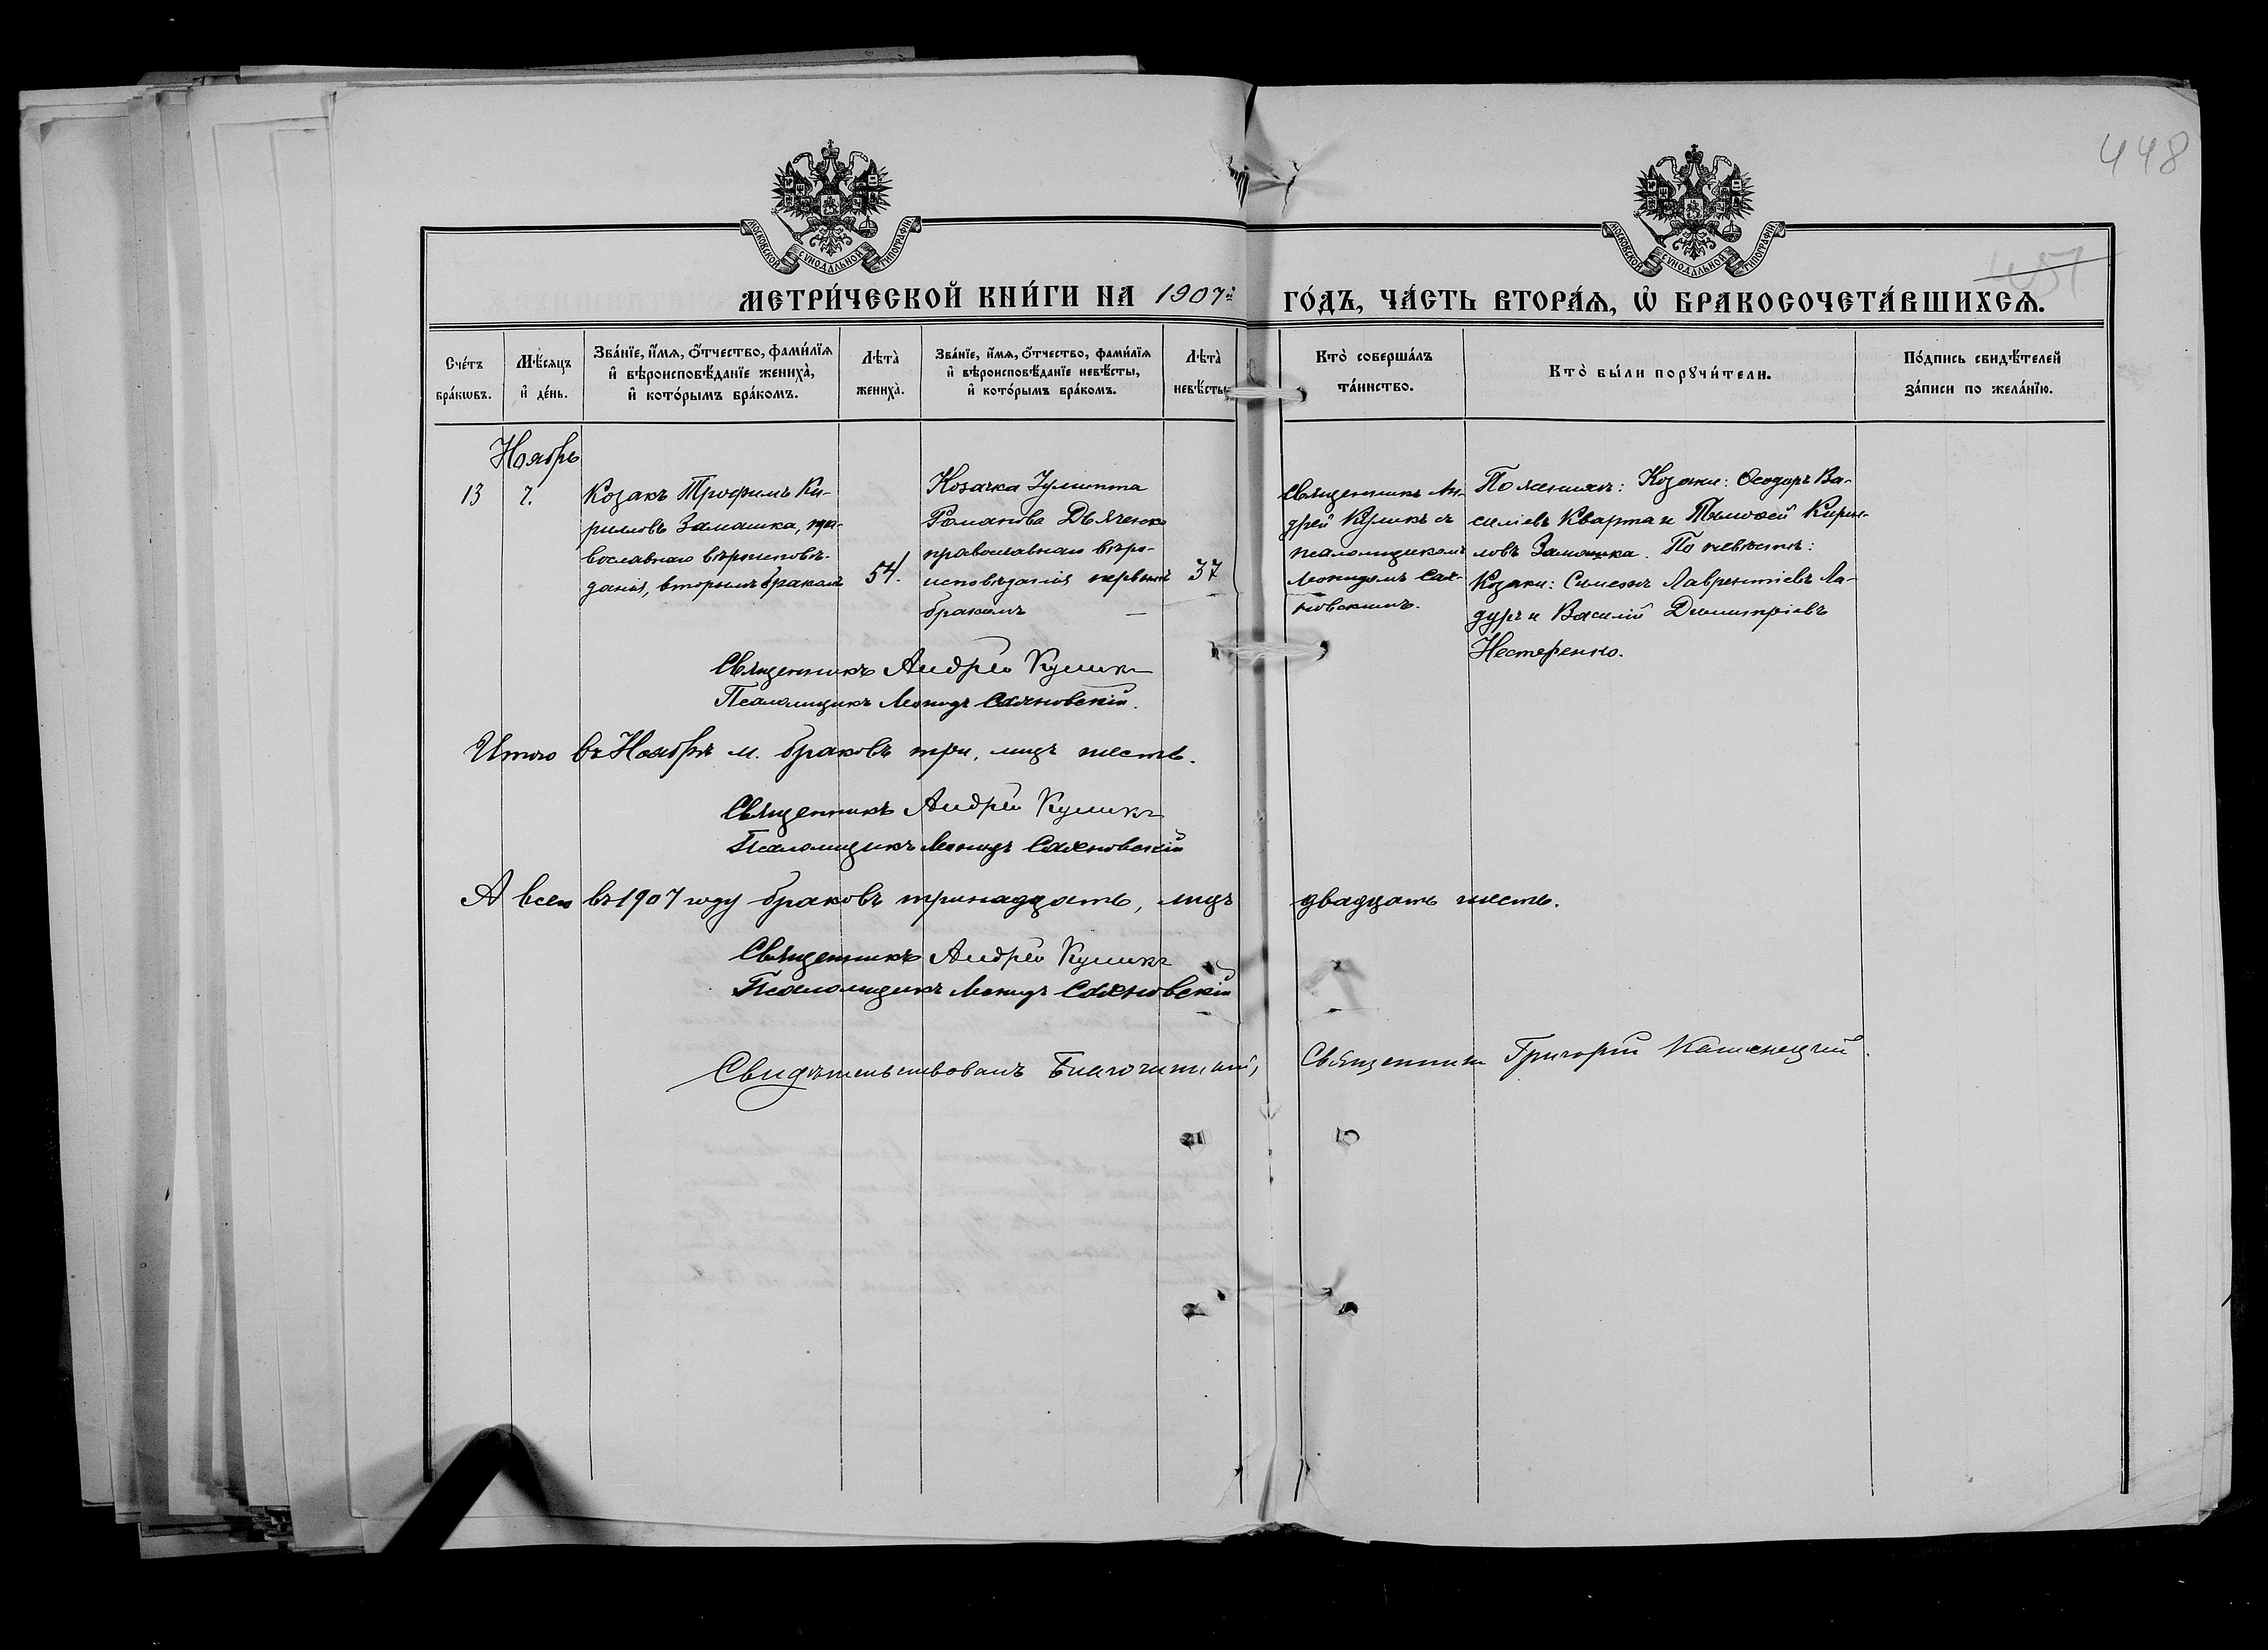 448
451
МОСКОВСКОЙ СѴНОДАЛЬНОЙ ТИПОГРАФІИ
МОСКОВСКОЙ СѴНОДАЛЬНОЙ ТИПОГРАФІИ
МЕТРИ́ЧЕСКОЙ КНИ́ГИ НА 1907й
ГО́ДЪ, ЧА́СТЬ ВТОРА́Ѧ, Ѡ҆ БРАКОСОЧЕТА́ВШИХСѦ.
Сче́тъ
бра́кѡвъ.
Мѣ́сѧцъ
и҆ де́нь.
Зва́нїе, и҆́мѧ, ѻ҆́тчество, фами́лїѧ
и҆ вѣроисповѣ́данїе жениха̀,
и҆ кото́рымъ бра́комъ.
Лѣта̀
жениха̀.
Зва́нїе, и҆́мѧ, ѻ҆́тчество, фами́лїѧ
и҆ вѣроисповѣ́данїе невѣ́сты,
и҆ кото́рымъ бра́комъ.
Лѣта̀
невѣ́сты
Кто̀ соверша́лъ
та́инство.
Кто̀ бы́ли порꙋчи́тели.
По́дпись свидѣ́телей
за́писи по жела́нїю.
Ноябрь
13
7.
Козакъ Трофимъ Ки-
рилловъ Замашка, пра-
вославнаго вѣроисповѣ-
данія, вторымъ бракомъ
54.
Козачка Іулитта
Романова Дьяченко
православнаго вѣро-
исповѣданія первымъ
бракомъ —
37
Священникъ Ан-
дрей Куликъ съ
псаломщикомъ
Леонидомъ Сах-
новскимъ.
По женихѣ: Козаки: Ѳеодоръ Ва-
силіевъ Кварта и Тимоѳей Кирил-
ловъ Замашка. По невѣстѣ:
Козаки: Симеонъ Лаврентіевъ Ла-
дуръ и Василій Димитріевъ
Нестеренко.
Священникъ Андрей Куликъ
Псаломщикъ Леонидъ Сахновскій.
Итого въ Ноябрѣ м. браковъ три, лицъ шесть.
Священникъ Андрей Куликъ
Псаломщикъ Леонидъ Сахновскій
А всего въ 1907 году браковъ тринадцать, лицъ двадцать шесть.
Священникъ Андрей Куликъ
Псаломщикъ Леонидъ Сахновскій
Свидѣтельствовалъ Благочинный, Священникъ Григорій Каменецкій.